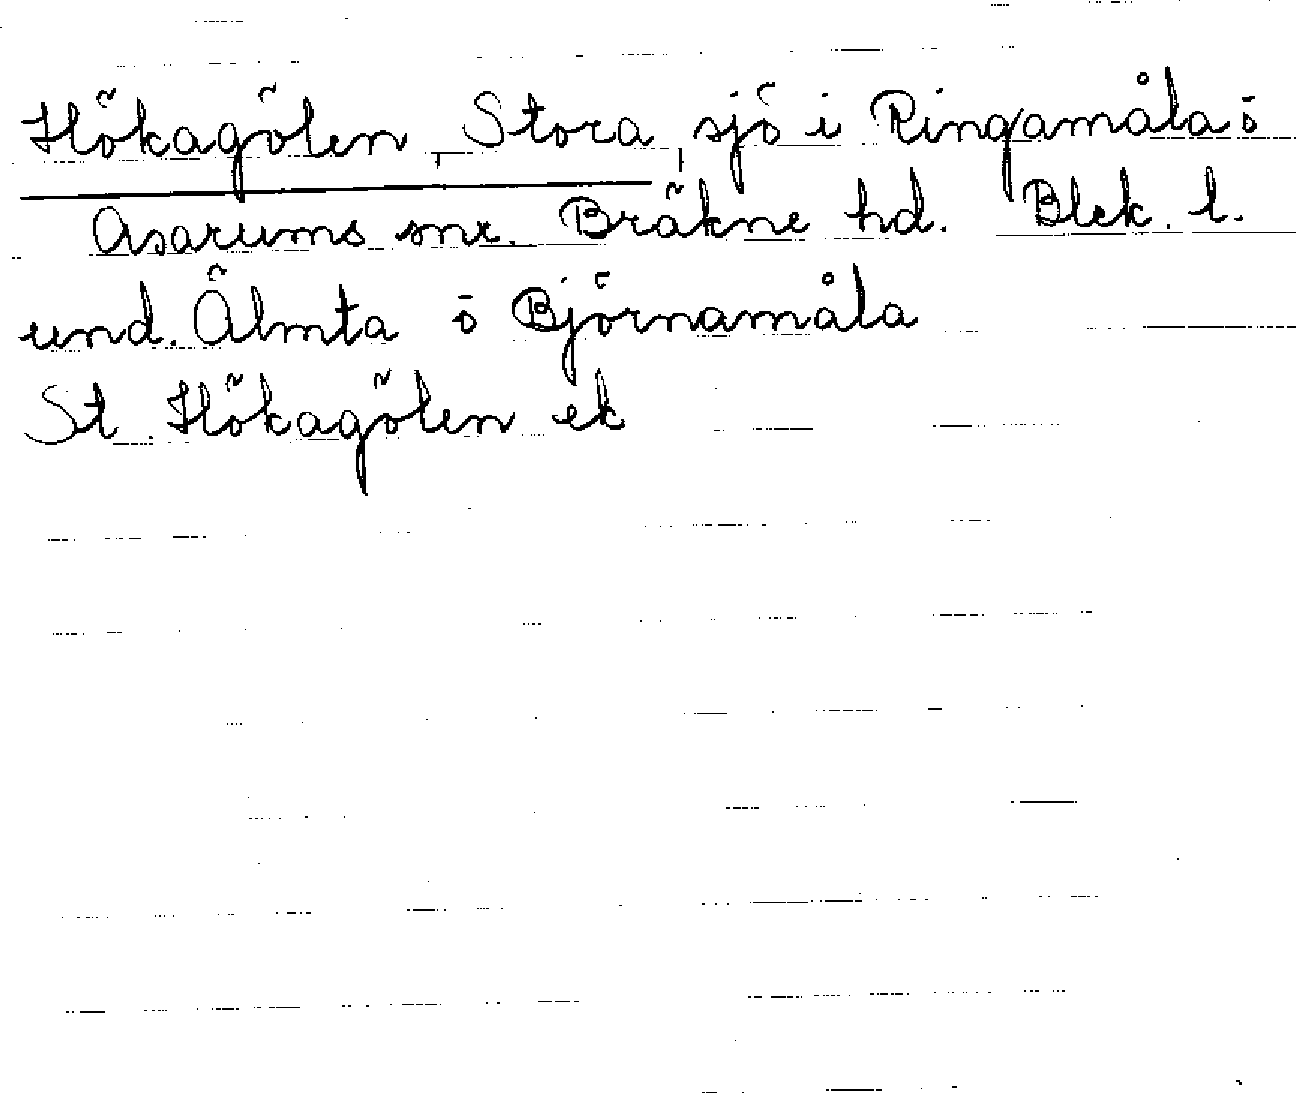 Hökagölen, Stora, sjö i Ringamåla o
Asarums snr. Bräkne hd. Blek. l.
und. Älmta o Björnamåla
St. Hökagölen ek